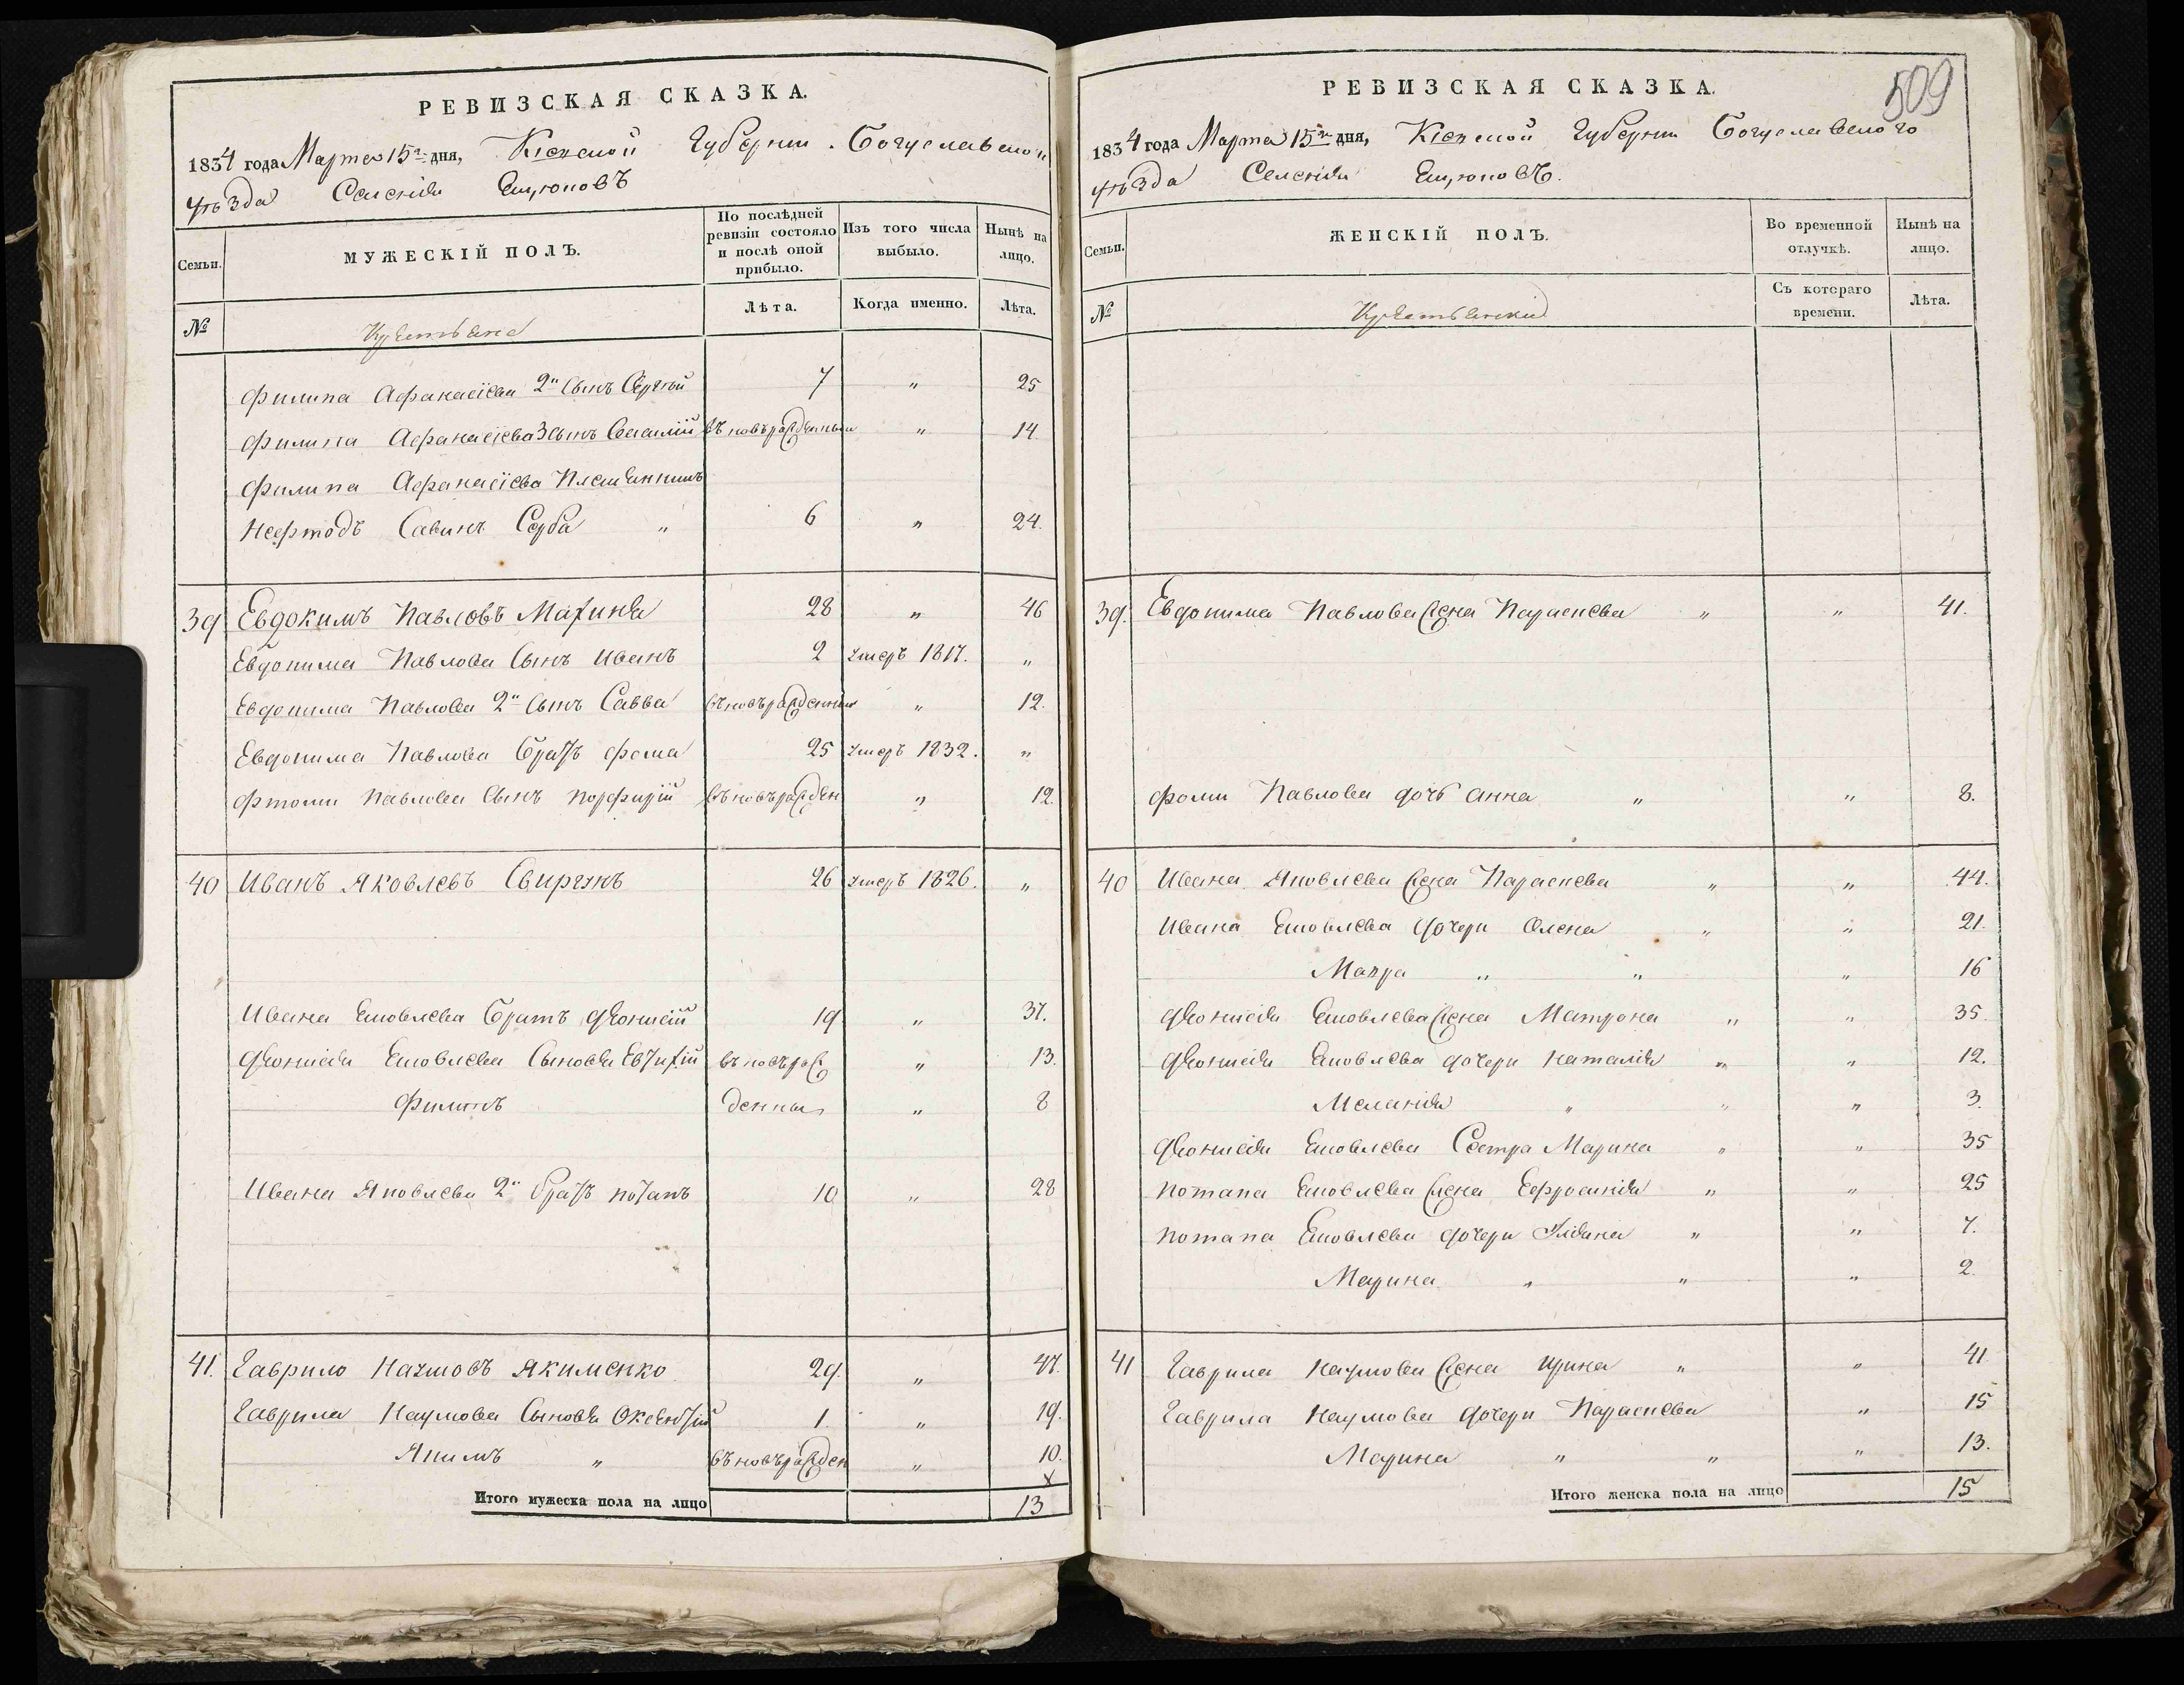 РЕВИЗСКАЯ СКАЗКА.
1834 года Марта 15го дня, Кіевской Губерніи Богуславского
уѣзда Селенія
Семьи. МУЖЕСКІЙ ПОЛЪ. По послѣдней ревизіи состояло и послѣ оной прибыло. Изъ того числа выбыло. Нынѣ на лицо.
№ Лѣта. Когда именно. Лѣта.
Крестьяне
Филипа Афанасіева 2й Сынъ Сергѣй 7 " 25
Филипа Афанасіева 3 Сынъ Василій " 14.
Филипа Афанасіева Племянникъ
Савинъ Серба " 6 " 24.
39 Евдокимъ Павловъ 28 " 46
Евдокима Павлова Сынъ Иванъ 2 умеръ 1817. "
Евдокима Павлова 2й Сынъ Савва " 12.
Евдокима Павлова Братъ Фома 25 умеръ 1832. "
Павлова Сынъ Порфирій " 12.
40 Иванъ Яковлевъ Свиргунъ 26 умеръ 1826. "
Ивана Ековлева Братъ Діонисій 19 " 37.
Діонисія Ековлева Сыновя Евтихій въ новърож " 13.
Филипъ денны " 8
Ивана Яковлева 2й братъ Потапъ 10 " 28
41. Гаврило Наумовъ Якименко 29. " 47.
Гаврила Наумова Сыновя 1. " 19.
Якимъ " въ новърожден " 10.
х
Итого мужеска пола на лицо 13
509
РЕВИЗСКАЯ СКАЗКА.
1834 года Марта 15го дня, Кіевской Губерніи Богуславского
уѣзда Селенія
Семьи. ЖЕНСКІЙ ПОЛЪ. Во временной отлучкѣ. Нынѣ на лицо.
№ Съ котораго времени. Лѣта.
Крестьянки
39. Евдокима Павлова Жена Параскева " " 41.
Фоми Павлова дочь Анна " " 8.
40 Ивана Яковлева Жена Параскева " " 44.
Ивана Ековлева дочери Олена " " 21.
Мавра " " " 16
Діонисія Ековлева Жена Матрона " " 35.
Діонисія Ековлева дочери Наталія " " 12.
Меланія " " " 3.
Діонисія Ековлева Сестра Марина " " 35
Потапа Ековлева Жена Ефросинія " " 25
Потапа Ековлева дочери " " 7.
Марина " " " 2.
41 Гаврила Наумова Жена Ирина " " 41
Гаврила Наумова дочери Параскева " 15
Марина " " " 13.
Итого женска пола на лицо 15